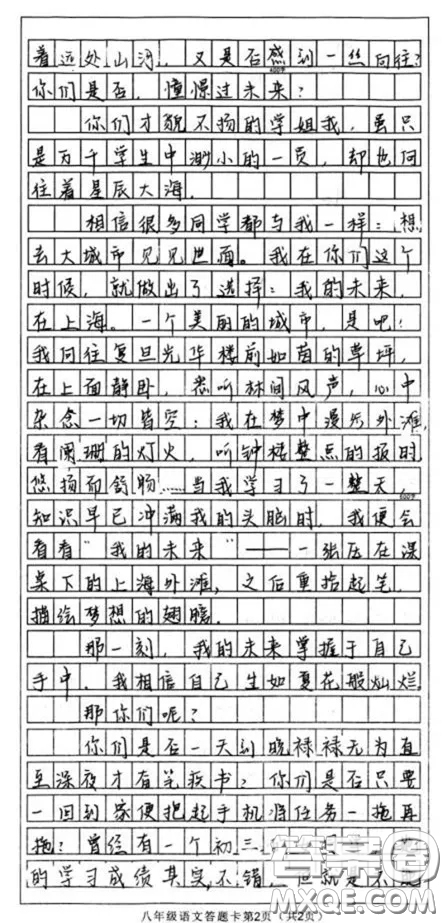 着远处山河，又是否感到一丝向往？
600字
你们是否，憧憬过未来？
你们才貌不扬的学姐我，虽只
是万千学生中渺小的一员，却也向
往着星辰大海。
相信很多同学都与我一样：想
去大城市见见世面。我在你们这个
时候，就做出了选择：我的未来，
在上海。一个美丽的城市，是吧！
我向往复旦光华楼前如茵的草坪，
在上面静卧，悉听林间风声，心中
杂念一切皆空；我在梦中漫步外滩，
看阑珊的灯火，听钟楼整点的报时，
悠扬而舒畅……当我学习了一整天，
800字
知识早已冲满我的头脑时，我便会
看看“我的未来”——一张压在深
桌下的上海外滩，之后重拾起笔，
描绘梦想的翅膀。
那一刻，我的未来掌握于自己
手中，我相信自己生如夏花般灿烂。
那你们呢？
你们是否一天到晚禄禄无为直
至深夜才有笔疾书？你们是否只要
一回到家便把起手机将任务一拖再
拖？曾经有一个初三
的学习成绩其实不错，但就是不能
八年级语文答题卡第2页（共2页）
答案圈